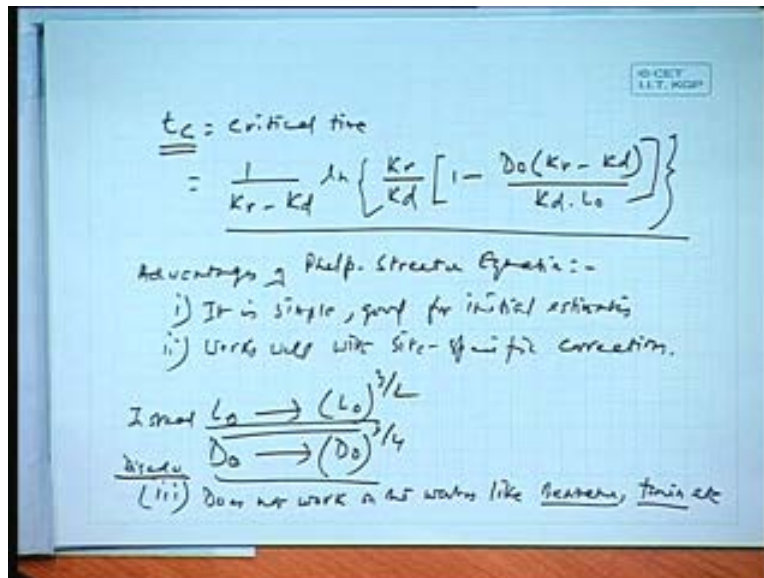 © CET
I.I.T. KGP
tc = critical time
= 1/(Kr - Kd) ln { Kr/Kd [ 1 - Do(Kr - Kd)/(Kd. Lo) ] }
Advantages of Phelp-Streeter Equation:-
i) It is simple, good for initial estimates
ii) Works well with site-specific correction.
Lo → (Lo)
Do → (Do)^3/4
Disadv
(iii) Does not work in waters like